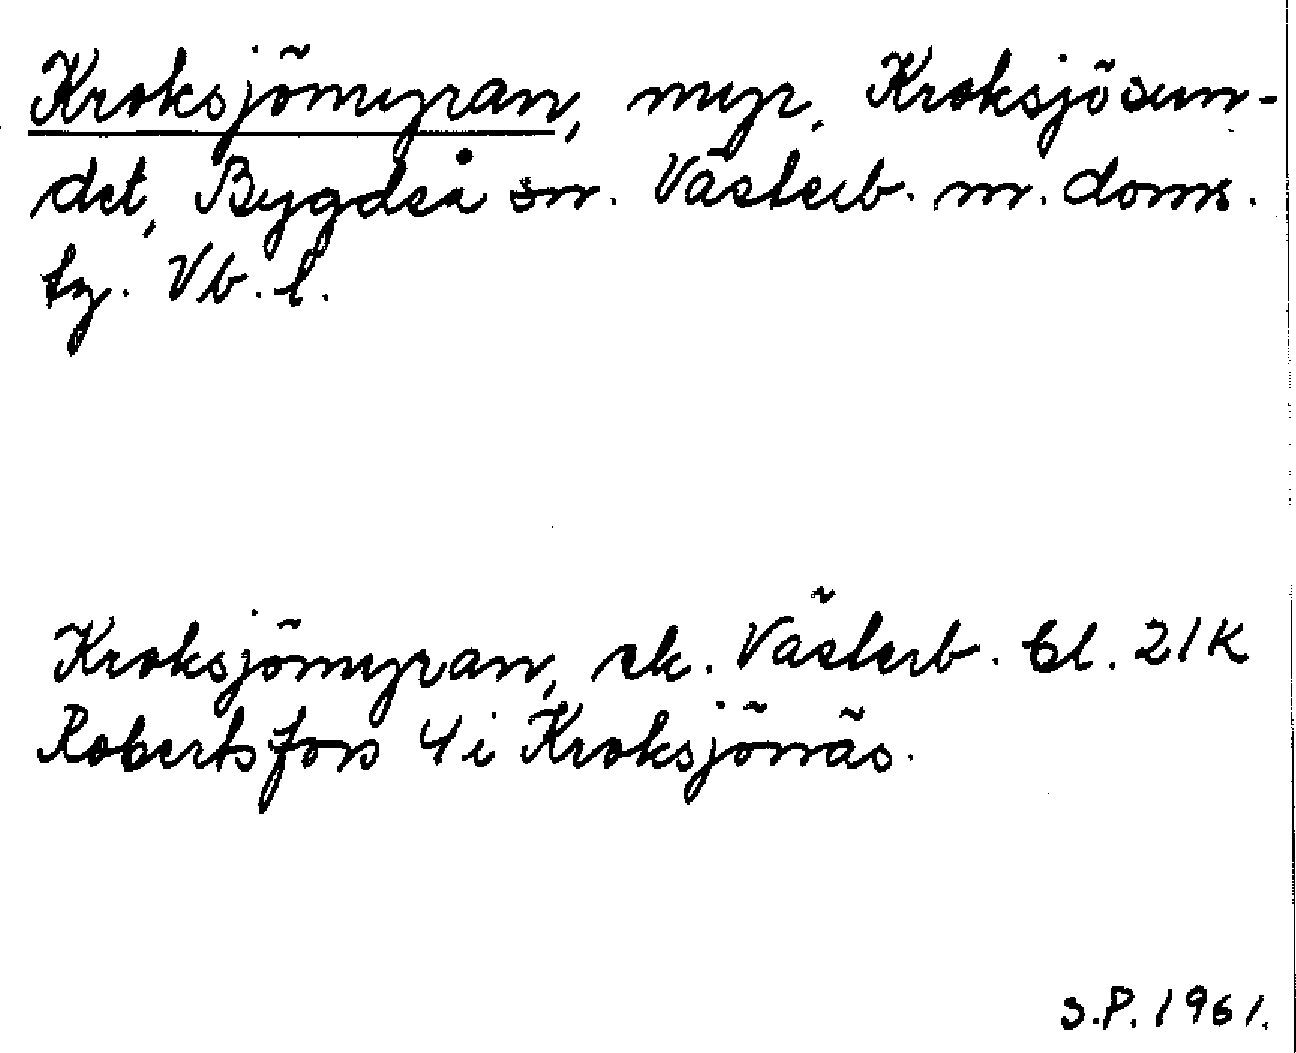 Kroksjömyran, myr, Kroksjösun-
det, Bygdeå sn. Västerb. n. doms.
tg. Vb. l.
Kroksjömyran, ek. Västerb. bl. 21K
Robertsfors 4i Kroksjönäs.
S.P. 1961.